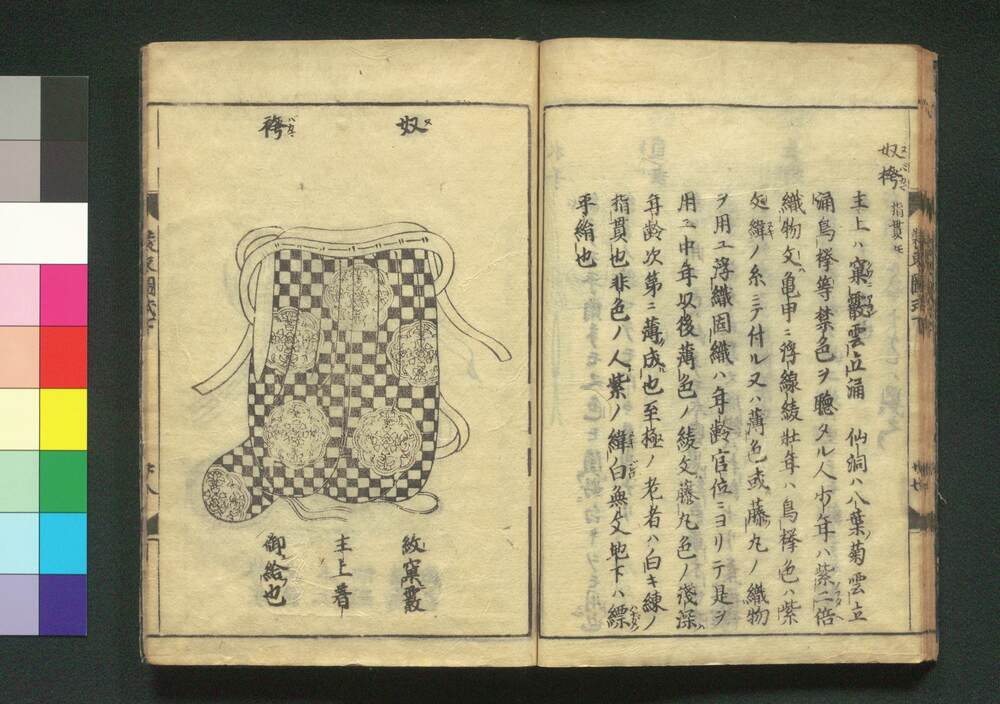 奴袴 指貫トモ
主上ハ窠霰雲立涌 仙洞ハ八葉菊雲立
涌鳥襷等禁色ヲ聴タル人少年ハ紫二倍
織物文亀甲ニ浮線綾壮年ハ鳥襷色ハ紫
緯ノ糸ニテ付ル又ハ薄色或藤丸ノ織物
ヲ用ユ浮織固織ハ年齢官位ニヨリテ是ヲ
用ニ中年以後薄色ノ綾文藤丸色ノ浅深
年齢次第ニ薄成也至極ノ老者ハ白キ練ノ
指貫也非色ノ人紫ノ緯白無文地下ハ縹
平絹也
奴袴
紋窠霰
主上着
御給也